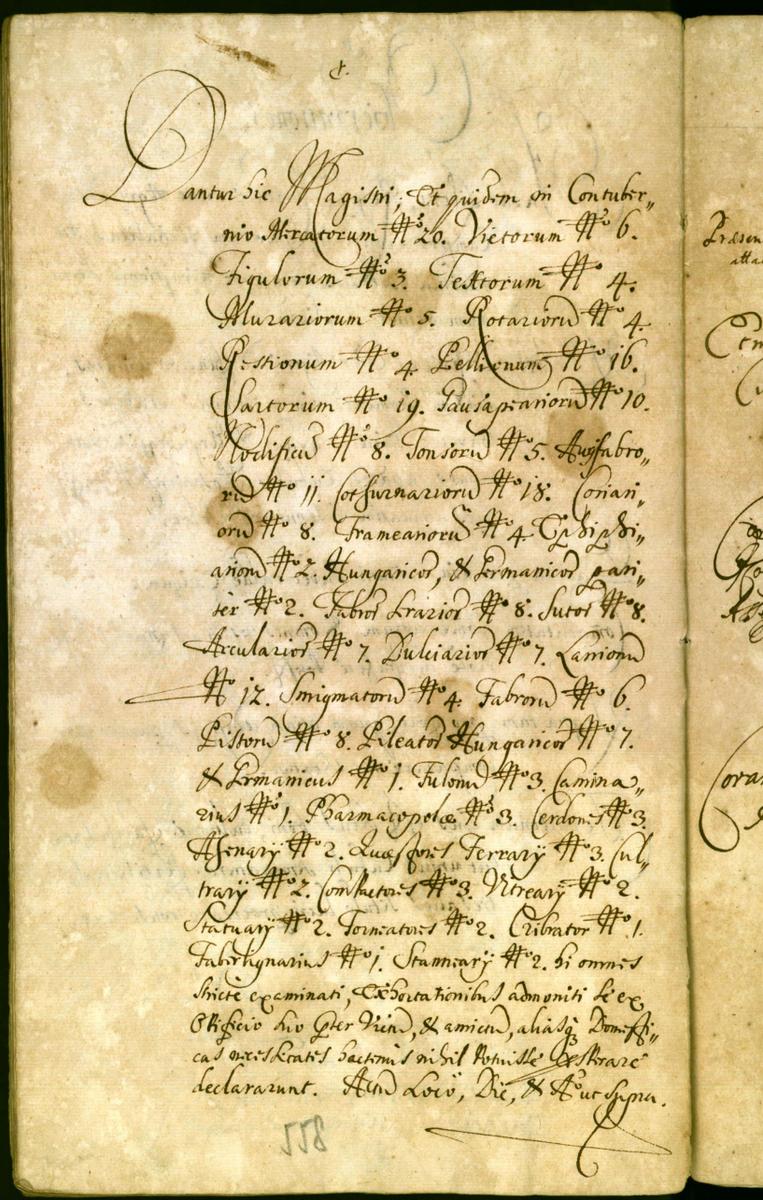 Dantur hic Magistri, Et quidem in Contuber„
nio Mercatorum Nº 20. Victorum Nº 6.
Figulorum Nº 3. Textorum Nº 4.
Murariorum Nº 5. Rotariorũ Nº 4.
Restionum Nº 4. Pellionum Nº 16.
Sartorum Nº 19. Gausapeariorũ Nº 10.
Nodificũ Nº 8. Tonsorũ Nº 5. Aurifabro„
rũ Nº 11. Cothurnariorũ Nº 18. Coriari„
orũ Nº 8. Frameariorũ Nº 4. Ephiphi„
ariorũ Nº 2. Hungaricos, & Germanicos pari„
ter Nº 2. Fabros Serarios Nº 8. Sutos Nº 8.
Arcularios Nº 7. Dulciarios Nº 7. Lanionũ
Nº 12. Smigmatorũ Nº 4. Fabrorũ Nº 6.
Pistorũ Nº 8. Pileatos Hungaricos Nº 7.
& Germanicus Nº 1. Fulonũ Nº 3. Camina„
rius Nº 1. Pharmacopolæ Nº 3. Cerdones Nº 3.
Ahenarÿ Nº 2. Quæstores Ferrarÿ Nº 3. Cul„
trarÿ Nº 2. Compactores Nº 3. Vitrearÿ Nº 2.
Statuarÿ Nº 2. Torneatores Nº 2. Cribrator Nº 1.
Faberlignarius Nº 1. Stannearÿ Nº 2. hi omnes
stricte examinati, Exhortationibus admoniti se ex
Opificio suo præter Victũ, & amictũ, aliasq; Domesti„
cas necessitates hactenus nihil potuisse
declararunt. Actũ Loco, Die, & Aº ut supra.